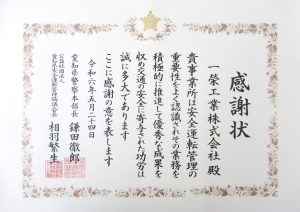 感謝状
一榮工業株式会社 殿
貴事業所は安全運転管理の
重要性をよく認識されその業務を
積極的に推進して優秀な成果を
収め交通の安全に寄与された功労は
誠に多大であります
ここに感謝の意を表します
令和六年五月二十四日
愛知県警察本部長 鎌田徹郎
公益社団法人
愛知県安全運転管理協議会長 相羽繁生